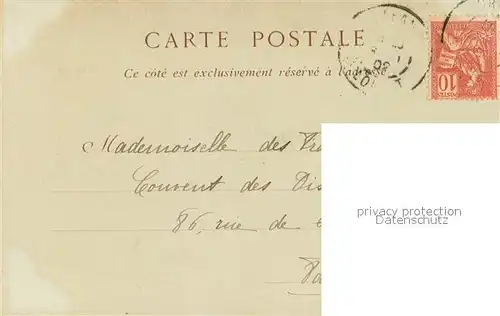 CARTE POSTALE
Ce côté est exclusivement réservé à l'adresse
10
POSTES
Mademoiselle des
Couvent des
86, rue de
privacy protection
Datenschutz